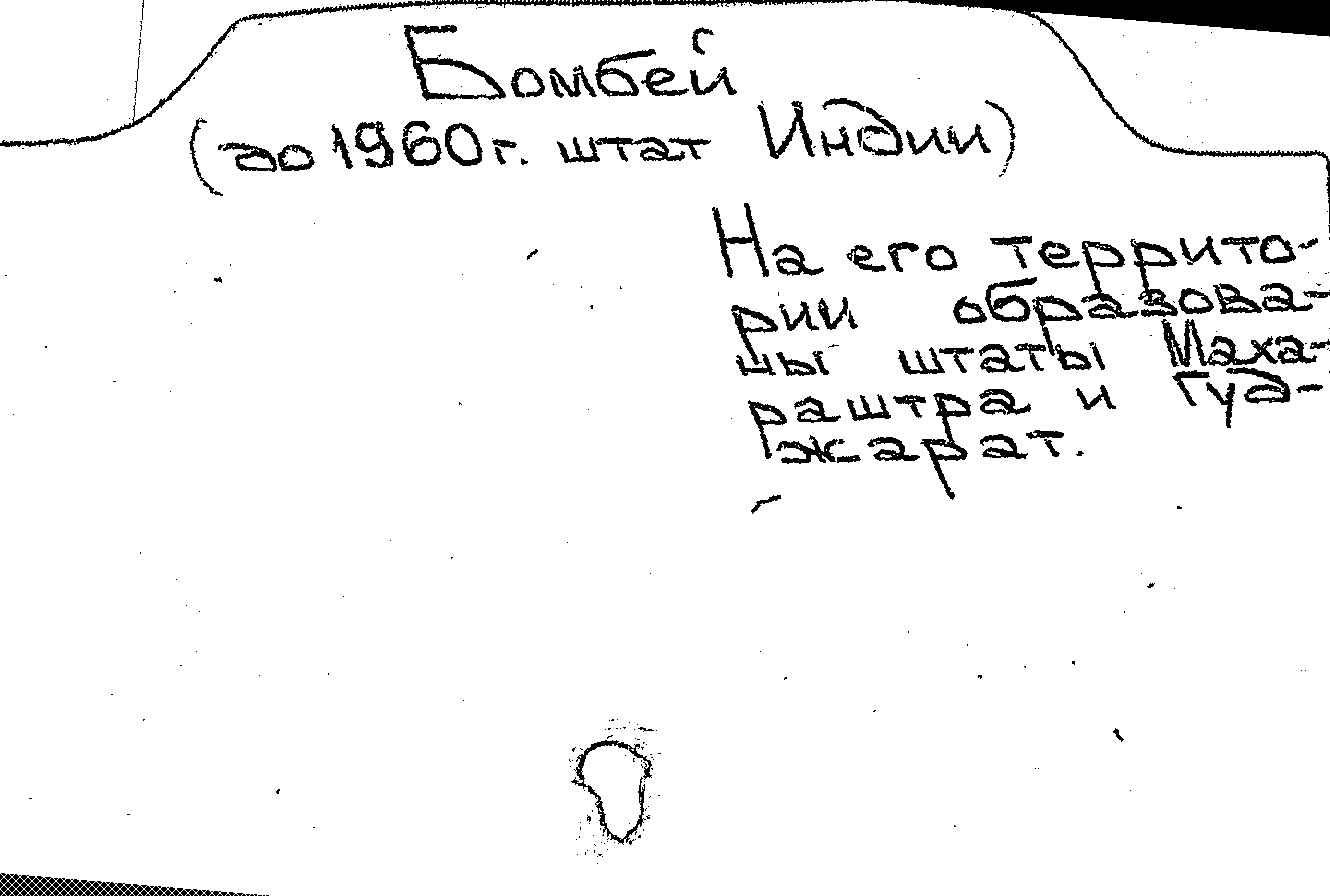 Бомбей
(до 1960 г. штат Индии)
На его террито-
рии образова-
ны штаты Маха-
раштра и Гуд-
жарат.